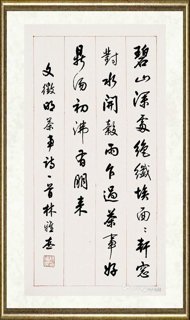 碧山深處絕纖埃面々軒窗
對水開穀雨乍過茶事好
鼎湯初沸有朋來
文徵明茶事詩一首林